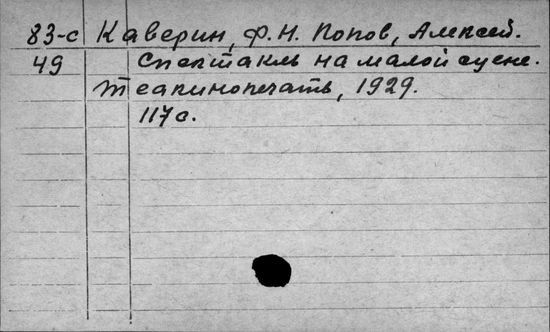 83-с Каверин, Ф.Н. Попов, Алексей.
49 Спектакль на малой сцене.
Теакинопечать, 1929.
117с.